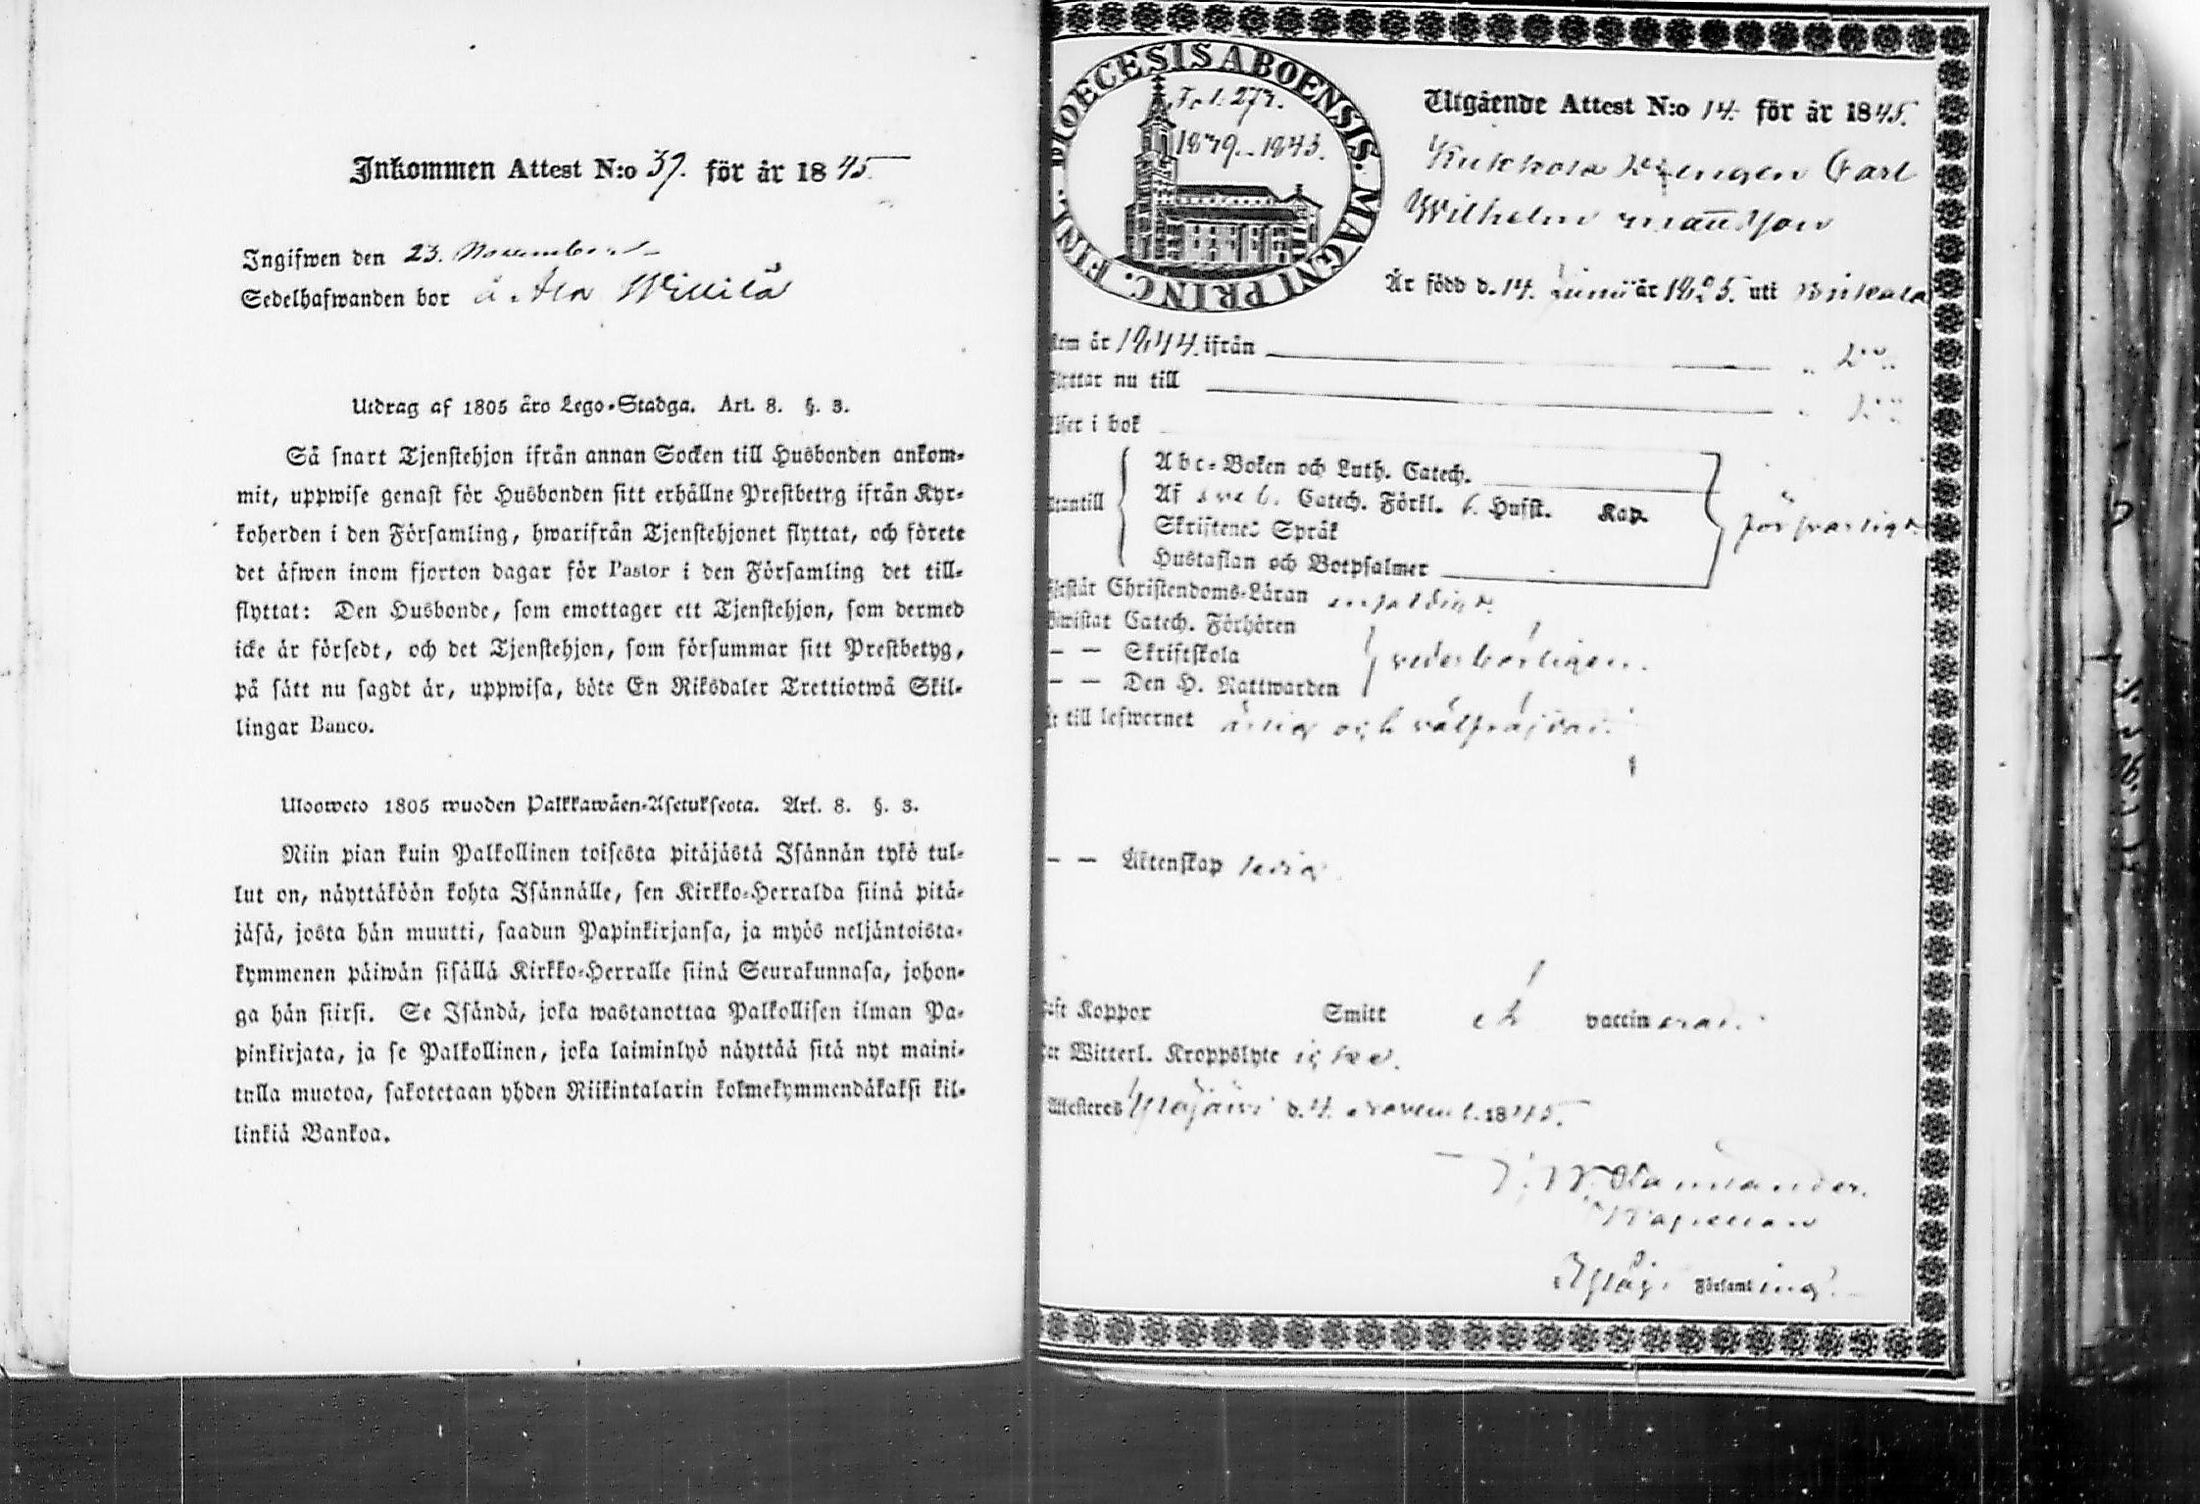 Inkommen Attest N:o 37. för år 1845.
Ingifwen den 23. November
Sedelhafwanden bor å Ala Willilä
Utdrag af 1805 åro Lego-Stadga. Art. 8. §. 3.
Så snart Tjenstehjon ifrån annan Socken till Husbonden ankom-
mit, uppwise genast för Husbonden sitt erhållne Prestbetyg ifrån Kyr-
koherden i den Församling, hwarifrån Tjenstehjonet flyttat, och förete
det äfwen inom fjorton dagar för Pastor i den Församling det till-
flyttat: Den Husbonde, som emottager ett Tjenstehjon, som dermed
icke är försedt, och det Tjenstehjon, som försummar sitt Prestbetyg,
på sätt nu sagdt är, uppwisa, böte En Riksdaler Trettiotwå Skil-
lingar Banco.
Uloosweto 1805 wuoden Palkkawäen-Asetuksesta. Art. 8. §. 3.
Niin pian kuin Palkollinen toisesta pitäjästä Isännän tykö tul-
lut on, näyttäköön kohta Isännälle, sen Kirkko-Herralda siinä pitä-
jäsä, josta hän muutti, saadun Papinkirjansa, ja myös neljäntoista-
kymmenen päiwän sisällä Kirkko-Herralle siinä Seurakunnasa, johon-
ga hän siirsi. Se Isändä, joka wastanottaa Palkollisen ilman Pa-
pinkirjata, ja se Palkollinen, joka laiminlyö näyttää sitä nyt maini-
tulla muotoa, sakotetaan yhden Riikintalarin kolmekymmendäkaksi kil-
linkiä Bankoa.
DIOECESIS ABOENSIS. MAGNI PRINC. FINL.
Fol. 273.
1839-1845.
Utgående Attest N:o 14. för år 1845.
Kukkola Drengen Carl
Wilhelm Mattsson
Är född d. 14. Junii år 1825. uti Birkala
kom år 1844. ifrån
flyttar nu till
Läser i bok
Utantill
Abc-Boken och Luth. Catech.
Af sveb. Catech. Förkl. 6. Hufst. Kap.
Skriftenes Språk
Hustaflan och Botpsalmer
försvarligt
Förstår Christendoms-Läran enfaldigt.
Bewistat Catech. Förhören
— — Skriftskola
— — Den H. Nattwarden
vederbörligen.
Är till lefwernet ärlig och välfräjdad.
— — Äktenskap ledig.
Haft Koppor Smitt el. vaccinerad.
Har Witterl. Kroppslyte icke.
Attesteres Ylöjärvi d. 4. Novemb. 1845.
Kapellan
Ylöj. Församling.